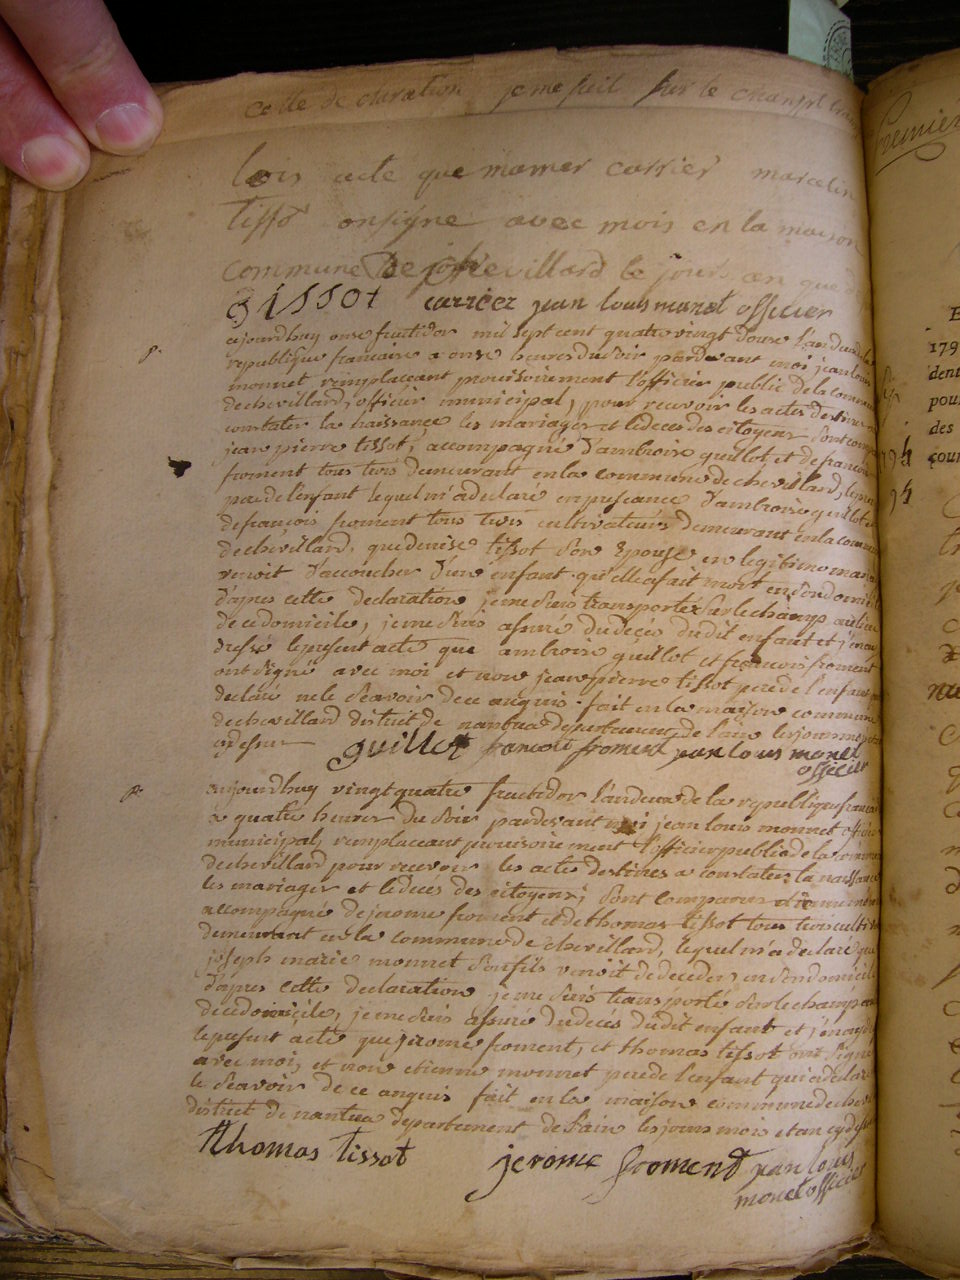 celle de claration je me suit sur le champt
lois acte que mamer carrier marcelin
tissó onsigne avec mois en la maison
commune De chevillard le jour en que d
gissot carrier jean louis monet officier
ajourdhuy onze fruttidor mil sept cent quatre vingt douze l'an deux de la
republique francaise a onze heures du soir pardevant moi jean louis
monnet remplaceant prouisoirement l'officier public de la commune
de chevillard, officier municipal, pour recevoir les actes destines a
constater la naissance les mariages et le deces des citoyens sont comparu
jean pierre tissot, accompagné d'ambroise guillot et de francois
froment tous trois demeurant en la commune de chevillard, le premier
pere de l'enfant lequel m'a declaré en presance d'ambroise guillot et
de françois froment tous trois cultivateurs demeurant en la commune
de chevillard, que denise tissot son Epouse en legitime mariage
venoit d'accoucher d'un enfant qu'elle a fait mort en son domicile
d'apres cette declaration je me suis transporté sur le champ au lieu
de ce domicile, je me suis assuré du decés dudit enfant et j'en ai
dresse le present acte que ambroise guillot et francois froment
ont signé avec moi et non jean pierre tissot pere de l'enfant qui a
declaré ne le scavoir de ce anquis. fait en la maison commune
de chevillard district de nantua departement de l'ain les jour mois et an
cy dessus guillot francois froment jean louis monet
officier
aujourdhuy vingt quatre fructidor l'an deux de la republique francaise
a quatre heures du soir pardevant moi jean louis monnet officier
municipal, remplaceant prouisoirement l'officier public de la commune
de chevillard pour recevoir les acte destines a constater la naissance
les mariages et le deces des citoyens; sont comparu etienne monnet
accompagné de jerome froment et de thomas tissot tous trois cultivateurs
demeurant en la commune de chevillard, lequel m'a declaré que
joseph marie monnet son fils venoit de deceder, en son domicile
d'apres cette declaration je me suis transporté sur le champ au
de ce domicile, je me suis assuré du decés dudit enfant et j'en ay
le present acte que jerome froment, et thomas tissot ont signé
avec moi, et non etienne monnet pere de l'enfant qui a declaré
le scavoir de ce anquis fait en la maison commune de chevillard
district de nantua departement de l'ain les jours mois et an cy dessus
thomas tissot jerome froment jean louis
monet officier